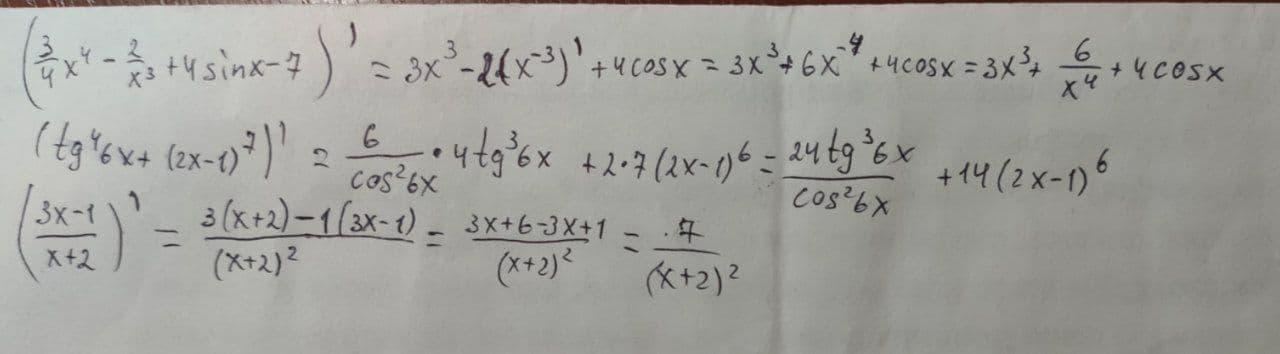 (3/4 x⁴ - 2/x³ + 4 sinx - 7)' = 3x³ - 2(x⁻³)' + 4cosx = 3x³ + 6x⁻⁴ + 4cosx = 3x³ + 6/x⁴ + 4cosx
(tg⁴6x + (2x-1)⁷)' = 6/cos²6x • 4tg³6x + 2•7(2x-1)⁶ = 24tg³6x/cos²6x + 14(2x-1)⁶
((3x-1)/(x+2))' = (3(x+2)-1(3x-1))/(x+2)² = (3x+6-3x+1)/(x+2)² = 7/(x+2)²